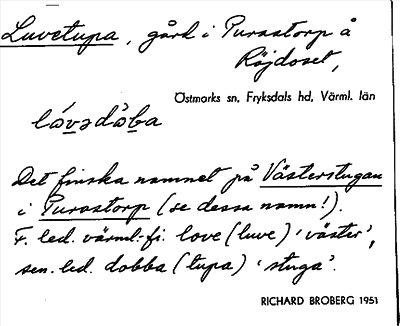 Luvetupa, gård i Purastorp å
Röjdoset,
Östmarks sn, Fryksdals hd, Värml. län
lóv̲ədàb̲a
Det finska namnet på Västerstugan
i Purastorp (se dessa namn!).
F. led. värml.-fi. love (luve) 'väster',
sen. led. dobba (tupa) 'stuga'.
RICHARD BROBERG 1951